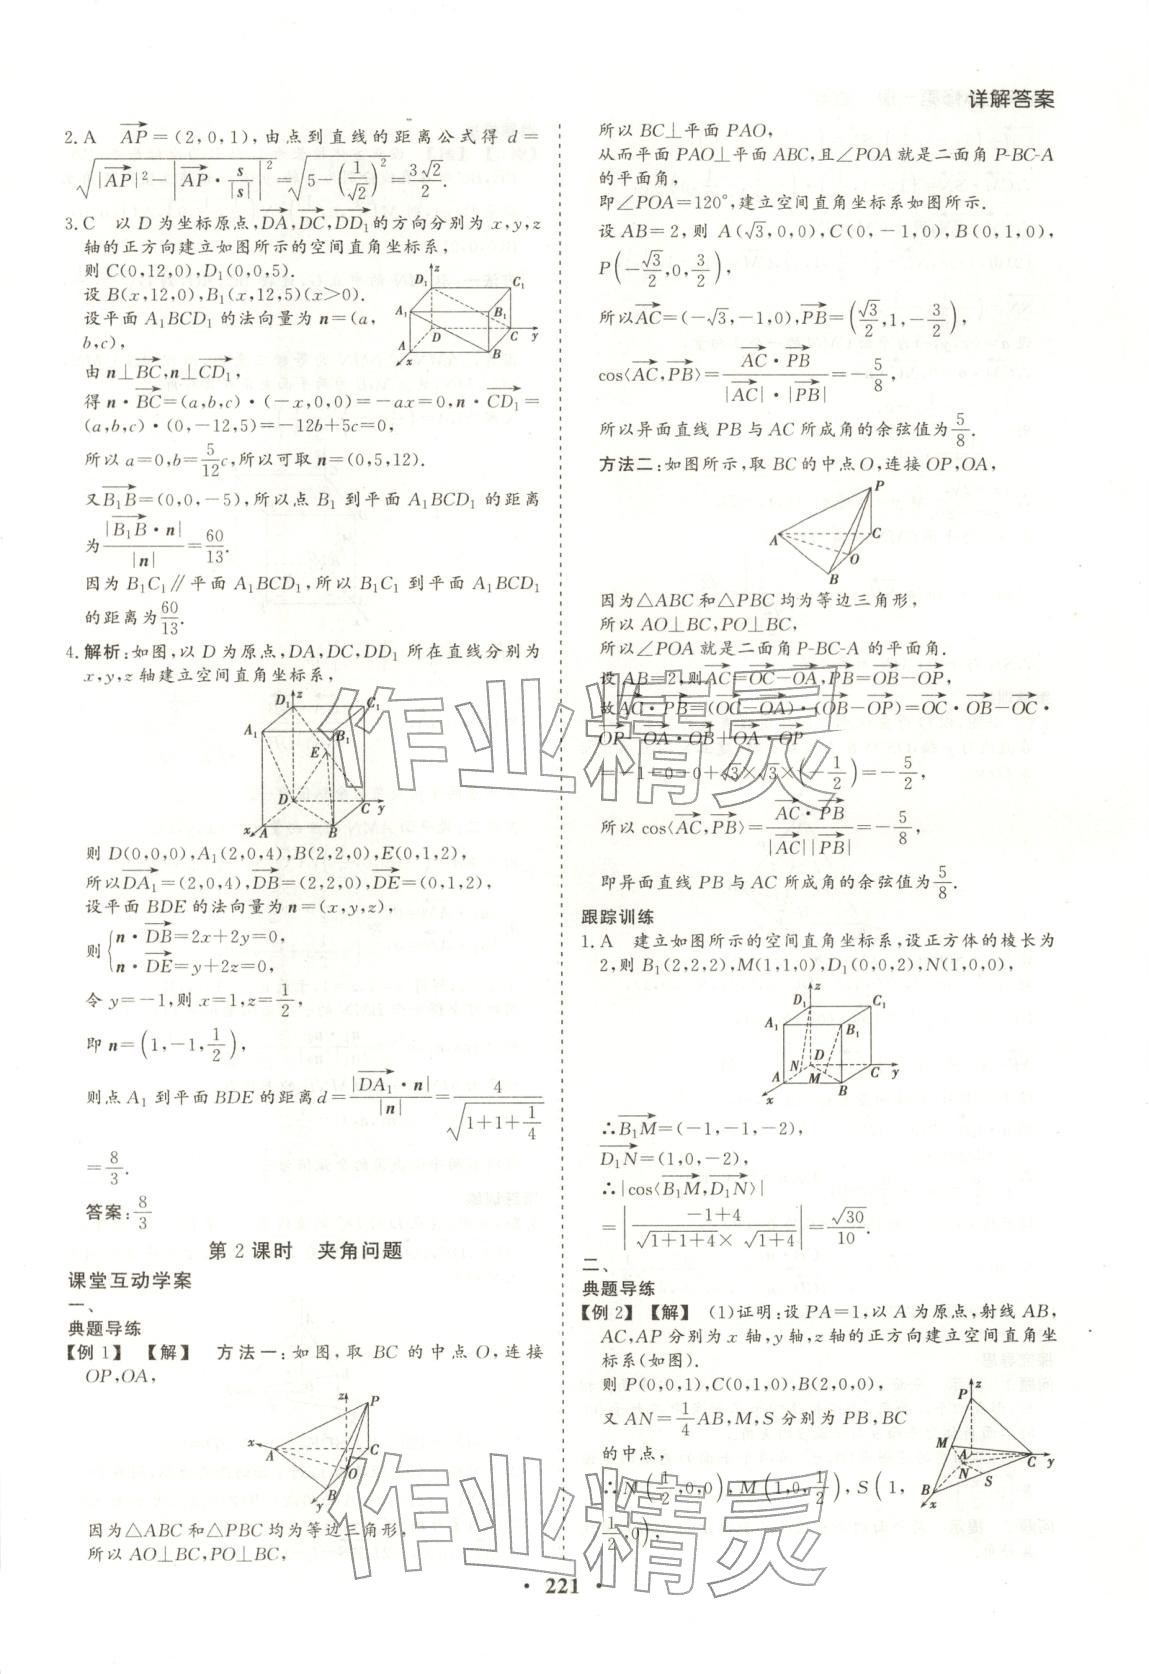 详解答案
2.A　$\overrightarrow{AP}$=(2,0,1),由点到直线的距离公式得 d=
$\sqrt{|\overrightarrow{AP}|^2-\left|\overrightarrow{AP}\cdot\frac{s}{|s|}\right|^2}=\sqrt{5-\left(\frac{1}{\sqrt{2}}\right)^2}=\frac{3\sqrt{2}}{2}$.
3.C　以 D 为坐标原点,$\overrightarrow{DA}$,$\overrightarrow{DC}$,$\overrightarrow{DD_1}$的方向分别为 x,y,z
轴的正方向建立如图所示的空间直角坐标系,
则 C(0,12,0),D₁(0,0,5).
设 B(x,12,0),B₁(x,12,5)(x>0).
设平面 A₁BCD₁ 的法向量为 n=(a,
b,c),
由 n⊥$\overrightarrow{BC}$,n⊥$\overrightarrow{CD_1}$,
z
D₁
C₁
A₁
B₁
D
C
y
A
B
x
得 n·$\overrightarrow{BC}$=(a,b,c)·(-x,0,0)=-ax=0,n·$\overrightarrow{CD_1}$=
(a,b,c)·(0,-12,5)=-12b+5c=0,
所以 a=0,b=$\frac{5}{12}$c,所以可取 n=(0,5,12).
又$\overrightarrow{B_1B}$=(0,0,-5),所以点 B₁ 到平面 A₁BCD₁ 的距离
为$\frac{|\overrightarrow{B_1B}\cdot n|}{|n|}=\frac{60}{13}$.
因为 B₁C₁∥平面 A₁BCD₁,所以 B₁C₁ 到平面 A₁BCD₁
的距离为$\frac{60}{13}$.
4.解析:如图,以 D 为原点,DA,DC,DD₁ 所在直线分别为
x,y,z 轴建立空间直角坐标系,
z
D₁
C₁
A₁
B₁
E
D
C
y
x
A
B
则 D(0,0,0),A₁(2,0,4),B(2,2,0),E(0,1,2),
所以$\overrightarrow{DA_1}$=(2,0,4),$\overrightarrow{DB}$=(2,2,0),$\overrightarrow{DE}$=(0,1,2),
设平面 BDE 的法向量为 n=(x,y,z),
则$\begin{cases}n\cdot\overrightarrow{DB}=2x+2y=0,\\n\cdot\overrightarrow{DE}=y+2z=0,\end{cases}$
令 y=-1,则 x=1,z=$\frac{1}{2}$,
即 n=$\left(1,-1,\frac{1}{2}\right)$,
则点 A₁ 到平面 BDE 的距离 d=$\frac{|\overrightarrow{DA_1}\cdot n|}{|n|}=\frac{4}{\sqrt{1+1+\frac{1}{4}}}$
=$\frac{8}{3}$.
答案:$\frac{8}{3}$
第 2 课时　夹角问题
课堂互动学案
一、
典题导练
【例 1】【解】　方法一:如图,取 BC 的中点 O,连接
OP,OA,
z
P
x
A
C
O
B
y
因为△ABC 和△PBC 均为等边三角形,
所以 AO⊥BC,PO⊥BC,
所以 BC⊥平面 PAO,
从而平面 PAO⊥平面 ABC,且∠POA 就是二面角 P-BC-A
的平面角,
即∠POA=120°,建立空间直角坐标系如图所示.
设 AB=2,则 A($\sqrt{3}$,0,0),C(0,-1,0),B(0,1,0),
P$\left(-\frac{\sqrt{3}}{2},0,\frac{3}{2}\right)$,
所以$\overrightarrow{AC}$=(-$\sqrt{3}$,-1,0),$\overrightarrow{PB}$=$\left(\frac{\sqrt{3}}{2},1,-\frac{3}{2}\right)$,
cos⟨$\overrightarrow{AC}$,$\overrightarrow{PB}$⟩=$\frac{\overrightarrow{AC}\cdot\overrightarrow{PB}}{|\overrightarrow{AC}|\cdot|\overrightarrow{PB}|}$=-$\frac{5}{8}$,
所以异面直线 PB 与 AC 所成角的余弦值为$\frac{5}{8}$.
方法二:如图所示,取 BC 的中点 O,连接 OP,OA,
P
A
C
O
B
因为△ABC 和△PBC 均为等边三角形,
所以 AO⊥BC,PO⊥BC,
所以∠POA 就是二面角 P-BC-A 的平面角.
设 AB=2,则$\overrightarrow{AC}$=$\overrightarrow{OC}$-$\overrightarrow{OA}$,$\overrightarrow{PB}$=$\overrightarrow{OB}$-$\overrightarrow{OP}$,
故$\overrightarrow{AC}$·$\overrightarrow{PB}$=($\overrightarrow{OC}$-$\overrightarrow{OA}$)·($\overrightarrow{OB}$-$\overrightarrow{OP}$)=$\overrightarrow{OC}$·$\overrightarrow{OB}$-$\overrightarrow{OC}$·
$\overrightarrow{OP}$-$\overrightarrow{OA}$·$\overrightarrow{OB}$+$\overrightarrow{OA}$·$\overrightarrow{OP}$
=-1-0-0+$\sqrt{3}$×$\sqrt{3}$×$\left(-\frac{1}{2}\right)$=-$\frac{5}{2}$,
所以 cos⟨$\overrightarrow{AC}$,$\overrightarrow{PB}$⟩=$\frac{\overrightarrow{AC}\cdot\overrightarrow{PB}}{|\overrightarrow{AC}||\overrightarrow{PB}|}$=-$\frac{5}{8}$,
即异面直线 PB 与 AC 所成角的余弦值为$\frac{5}{8}$.
跟踪训练
1.A　建立如图所示的空间直角坐标系,设正方体的棱长为
2,则 B₁(2,2,2),M(1,1,0),D₁(0,0,2),N(1,0,0),
z
D₁
C₁
A₁
B₁
N
D
A
M
C
y
B
x
∴$\overrightarrow{B_1M}$=(-1,-1,-2),
$\overrightarrow{D_1N}$=(1,0,-2),
∴|cos⟨$\overrightarrow{B_1M}$,$\overrightarrow{D_1N}$⟩|
=$\left|\frac{-1+4}{\sqrt{1+1+4}\times\sqrt{1+4}}\right|=\frac{\sqrt{30}}{10}$.
二、
典题导练
【例 2】【解】　(1)证明:设 PA=1,以 A 为原点,射线 AB,
AC,AP 分别为 x 轴,y 轴,z 轴的正方向建立空间直角坐
标系(如图).
则 P(0,0,1),C(0,1,0),B(2,0,0),
又 AN=$\frac{1}{4}$AB,M,S 分别为 PB,BC
的中点,
∴N$\left(\frac{1}{2},0,0\right)$,M$\left(1,0,\frac{1}{2}\right)$,S$\Big($1,
$\frac{1}{2}$,0$\Big)$,
z
P
M
A
C
y
N
B
S
x
· 221 ·
作业精灵
作业精灵